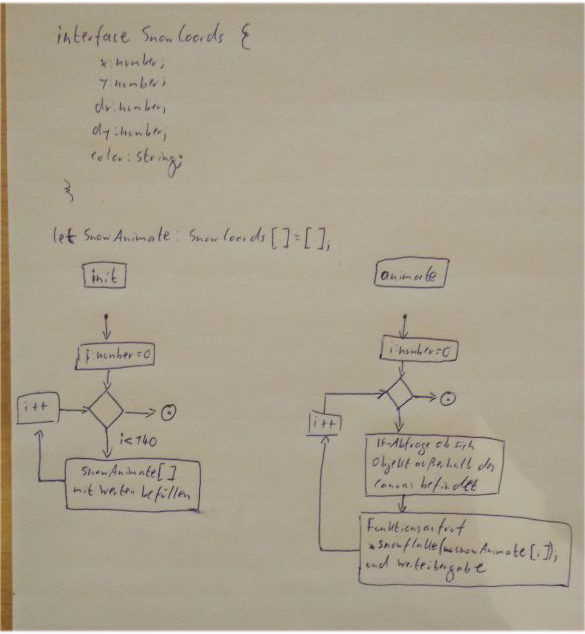 interface SnowCoords {
x:number;
y:number;
dx:number;
dy:number;
color:string;
}
let SnowAnimate: SnowCoords[]=[];
init
i:number=0
i++
i<140
snowAnimate[]
mit Werten befüllen
animate
i:number=0
i++
If-Abfrage ob sich
Objekt außerhalb des
Canvas befindet
Funktionsaufruf
snowflake(snowAnimate[i]);
und Werteübergabe